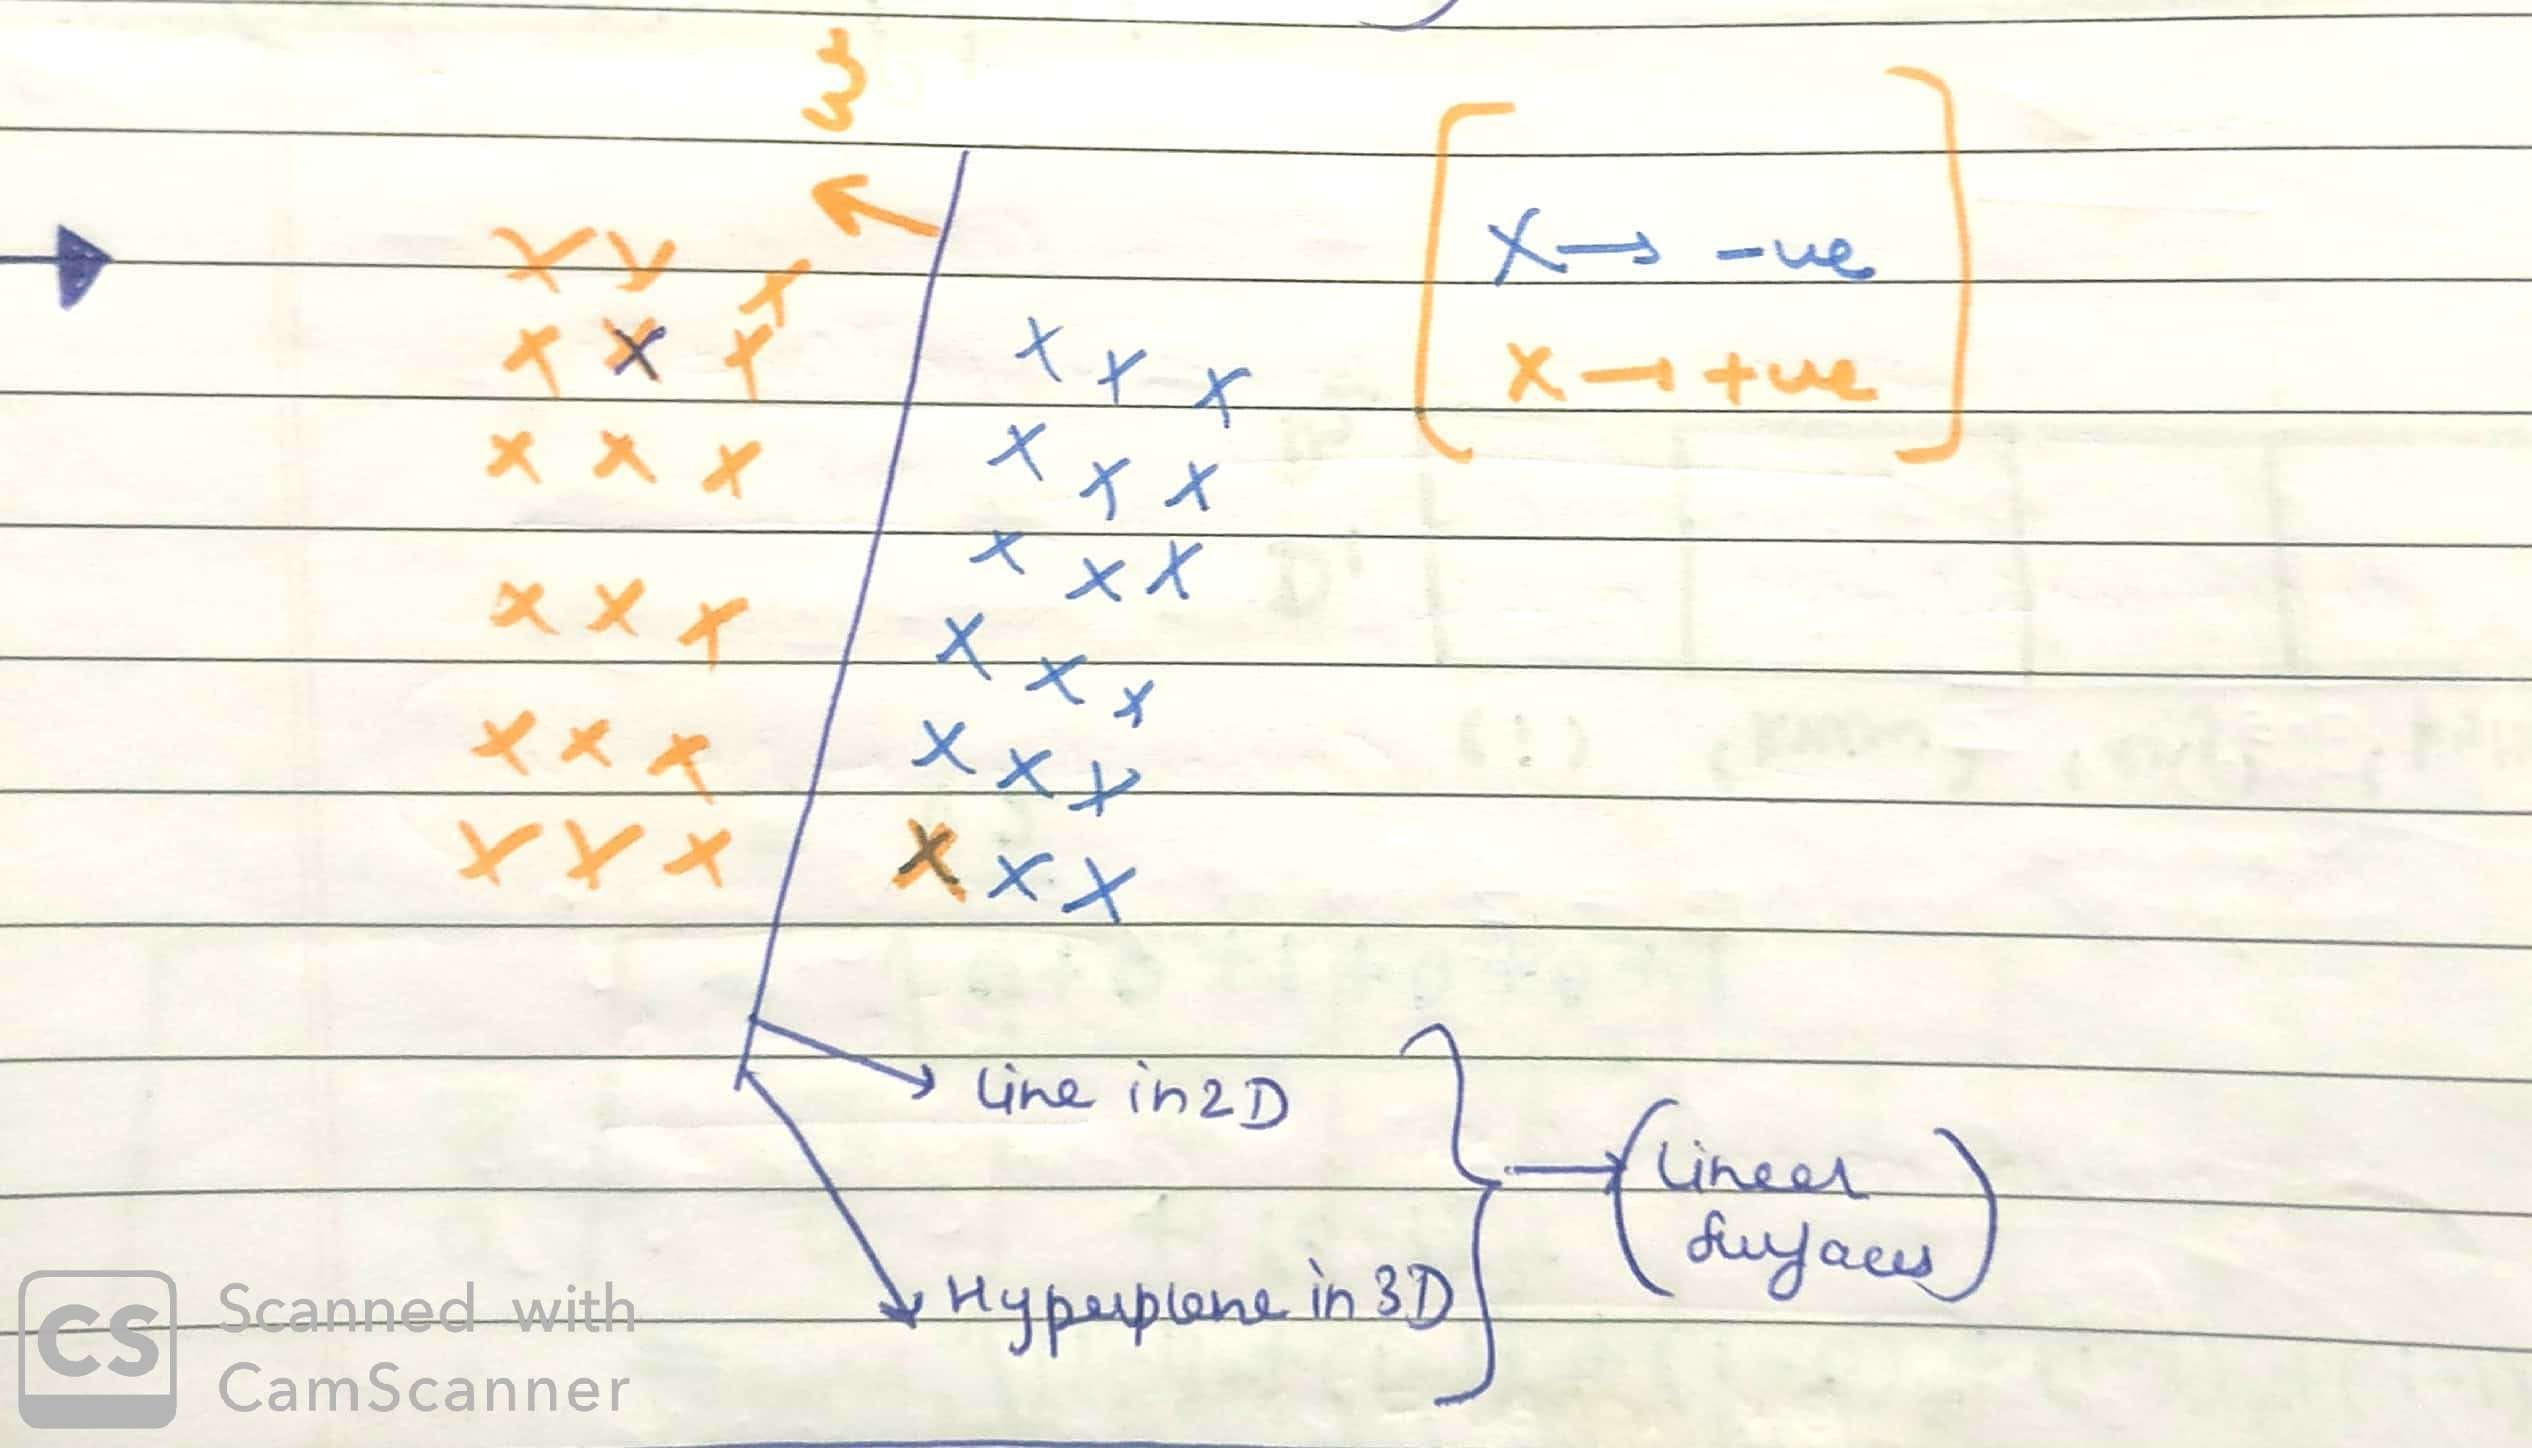 w
x → -ve
x → +ve
Line in 2D
Hyperplane in 3D
(Linear
Surfaces)
CS
Scanned with
CamScanner